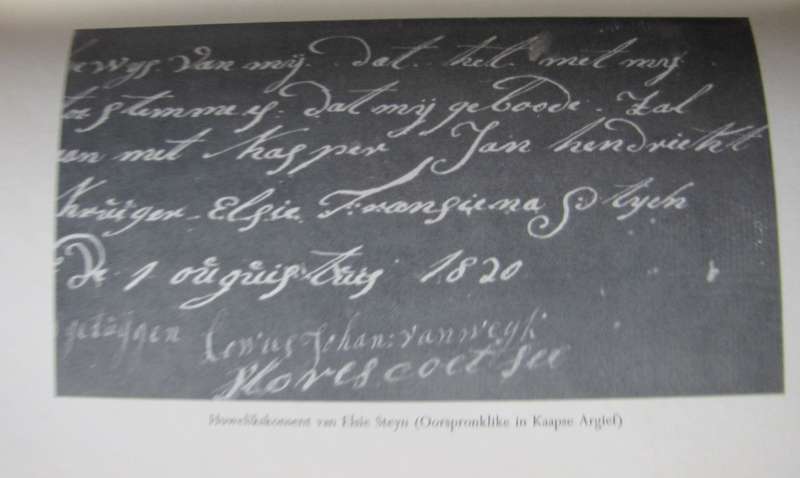 bewys van mij dat het met mij
toe stemme is. dat mij geboode. Zal
gaan met Kasper Jan hendriekk
Kruiger Elsie Fransiena Styen
de 1 ouguistuis 1820
getuygen Lewus Johan: van weyk
Flores coetsee
Huwelikskonsent van Elsie Steyn (Oorspronklike in Kaapse Argief)